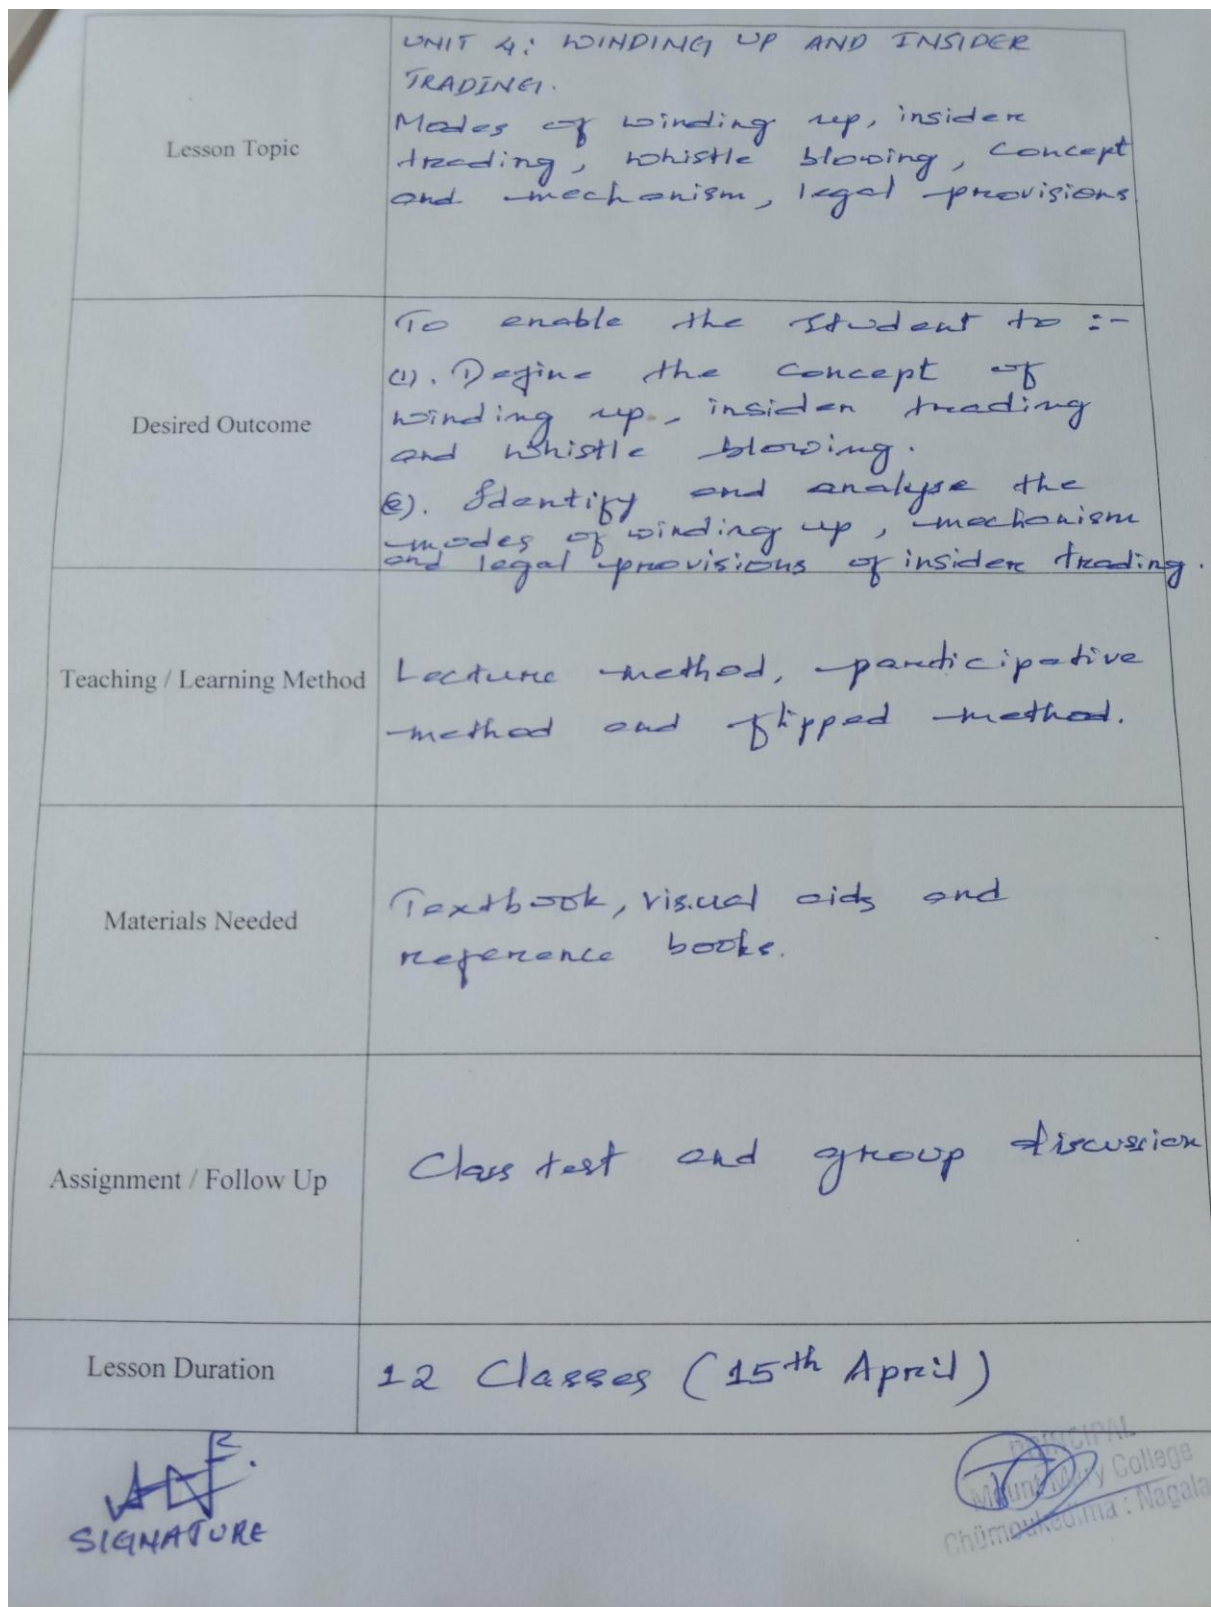 Lesson Topic
UNIT 4: WINDING UP AND INSIDER
TRADING.
Modes of winding up, insider
trading, whistle blowing, concept
and mechanism, legal provisions
Desired Outcome
To enable the student to :-
(1). Define the concept of
winding up, insider trading
and whistle blowing.
(2). Identify and analyse the
modes of winding up, mechanism
and legal provisions of insider trading.
Teaching / Learning Method
Lecture method, participative
method and flipped method.
Materials Needed
Textbook, visual aids and
reference books.
Assignment / Follow Up
Class test and group discussion
Lesson Duration
12 Classes (15th April)
SIGNATURE
PRINCIPAL
Mount Mary College
Chümoukedima : Nagala